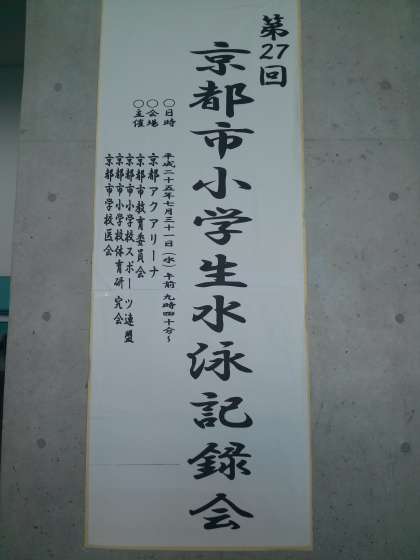 第27回
京都市小学生水泳記録会
○日時 平成二十五年七月三十一日(水)午前 九時四十分~
○会場 京都アクアリーナ
○主催 京都市教育委員会
京都市小学校スポーツ連盟
京都市小学校体育研究会
京都市学校医会